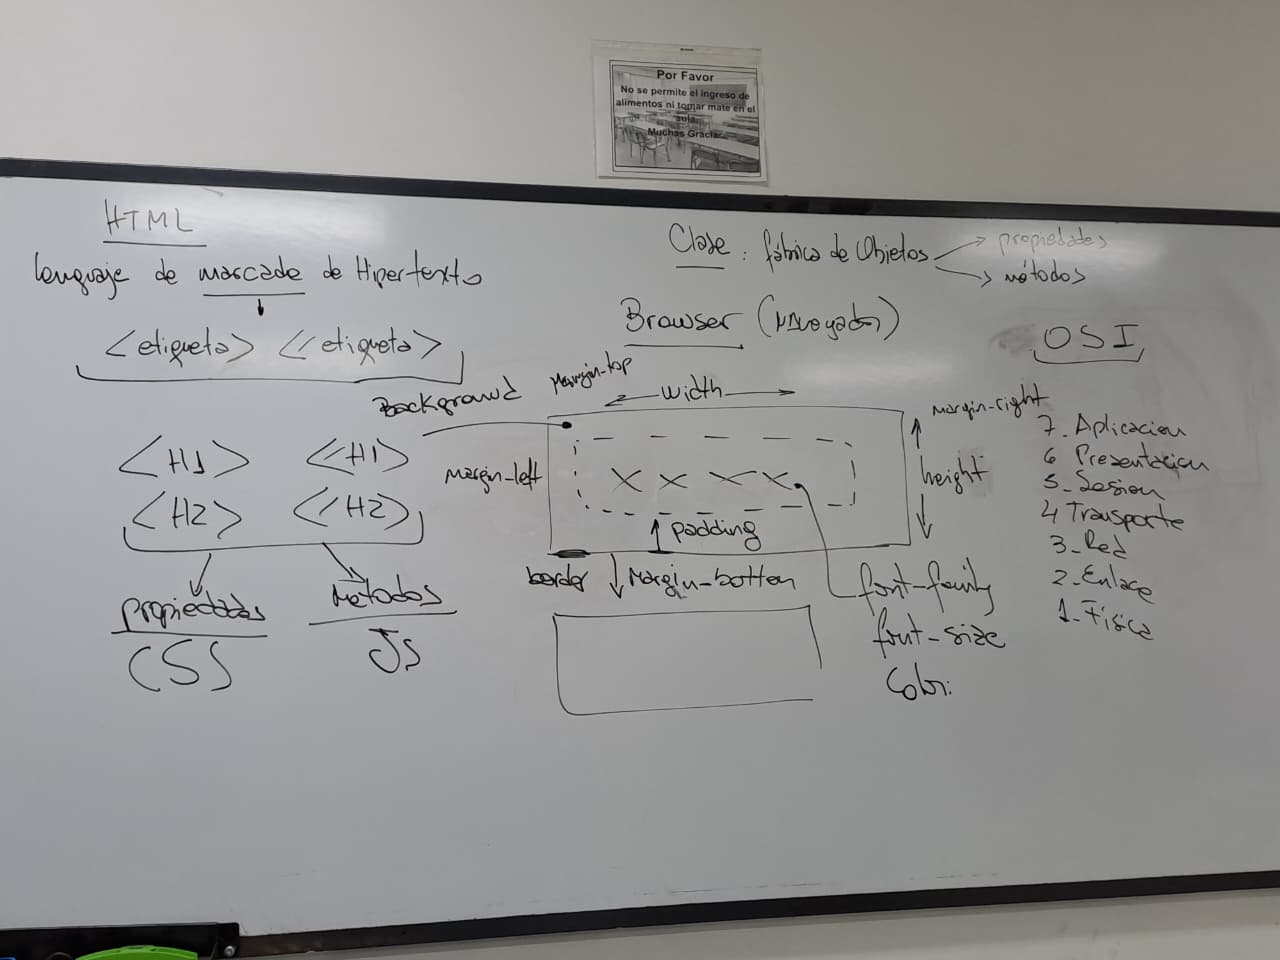 Por Favor
No se permite el Ingreso de
alimentos ni tomar mate en el
aula.
Muchas Gracias
HTML
lenguaje de marcado de Hipertexto
<etiqueta> </etiqueta>
<H1> </H1>
<H2> </H2>
propiedades
CSS
Métodos
JS
Clase: fábrica de Objetos
propiedades
métodos
Browser (Navegador)
Background
Margin-top
width
margin-right
Margin-left
height
padding
border
Margin-bottom
font-family
font-size
Color:
OSI
7. Aplicacion
6 Presentacion
5_Sesion
4 Transporte
3_Red
2_Enlace
1_Fisica